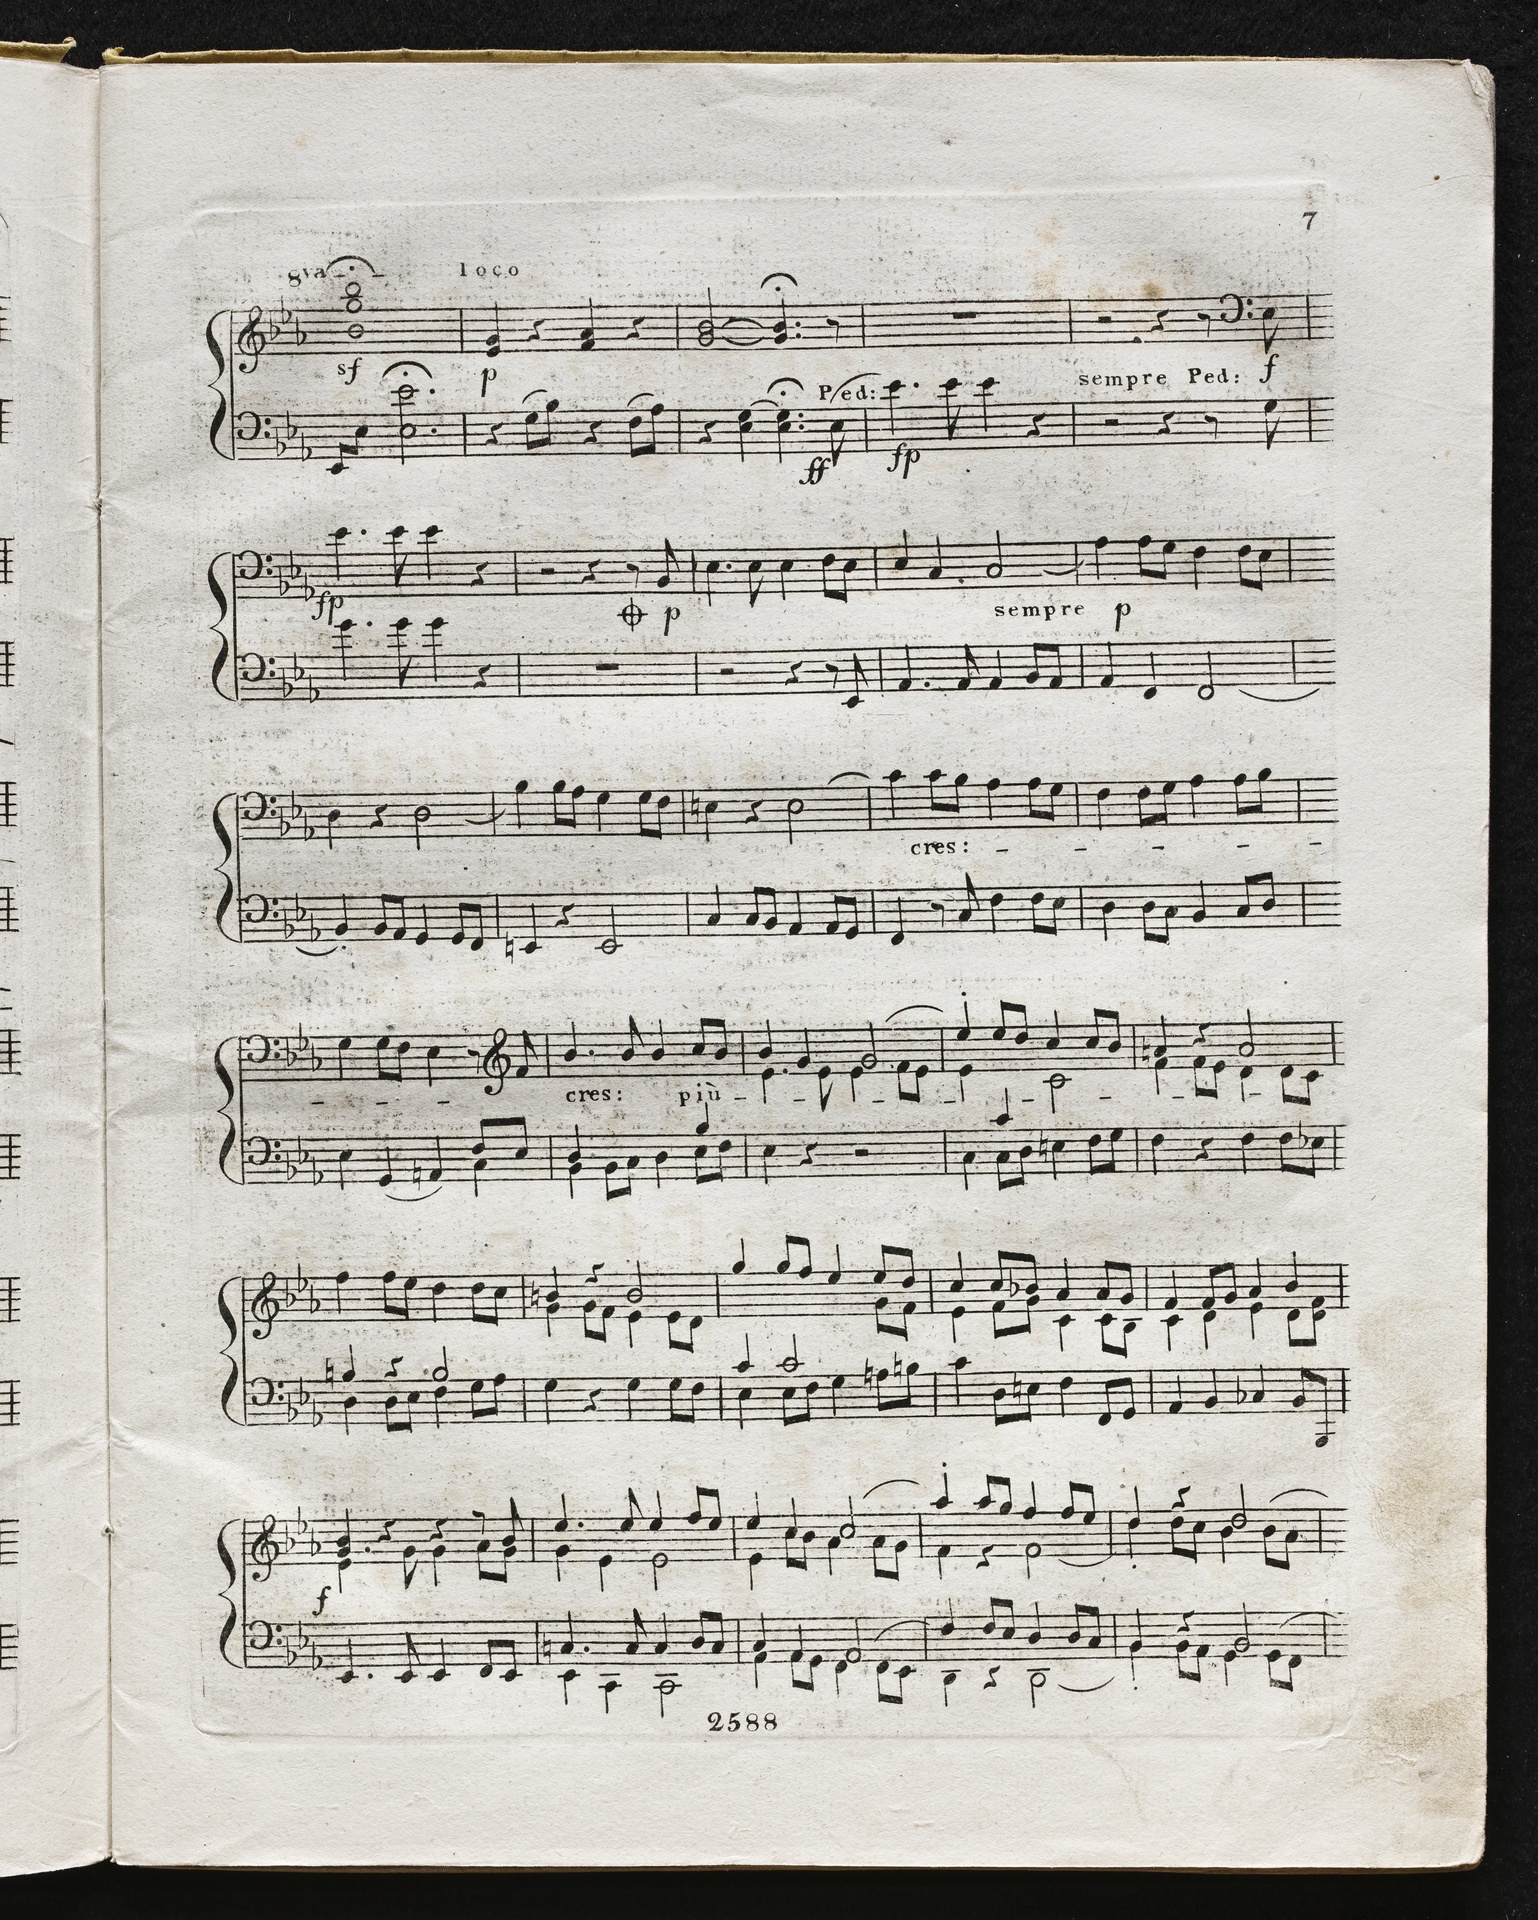 7
8va loco
sf p Ped: sempre Ped: f
ff fp
fp p sempre p
cres:
cres: più
f
2588